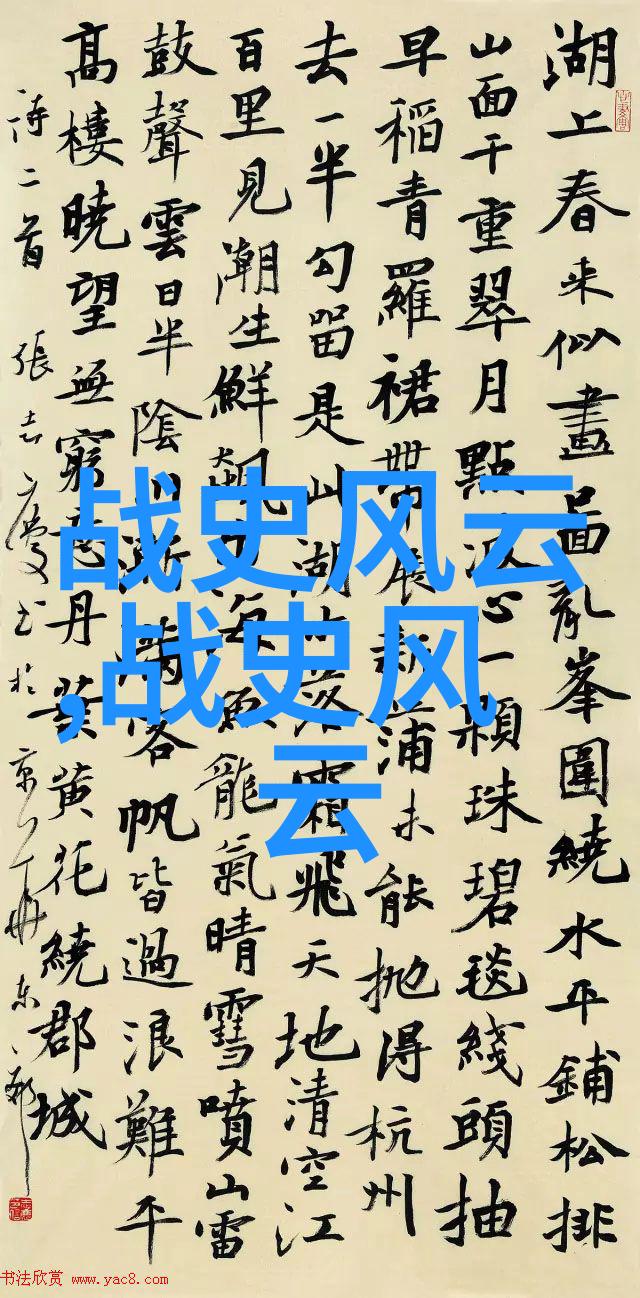 湖上春来似畫啚亂峯圍繞水平鋪松排
山面千重翠月點波心一顆珠碧毯綫頭抽
早稻青羅裙帶展新蒲未能抛得杭州
去一半勾留是此湖落霜飛天地清空江
百里見潮生鮮飇海魚龍氣晴雪噴山雷
鼓聲雲日半陰川漸滿客帆皆過浪難平
高樓曉望無窮意丹葉黄花繞郡城
詩二首 張志慶书於京華東
战史风云
,战史风
云
书法欣赏 www.yac8.com